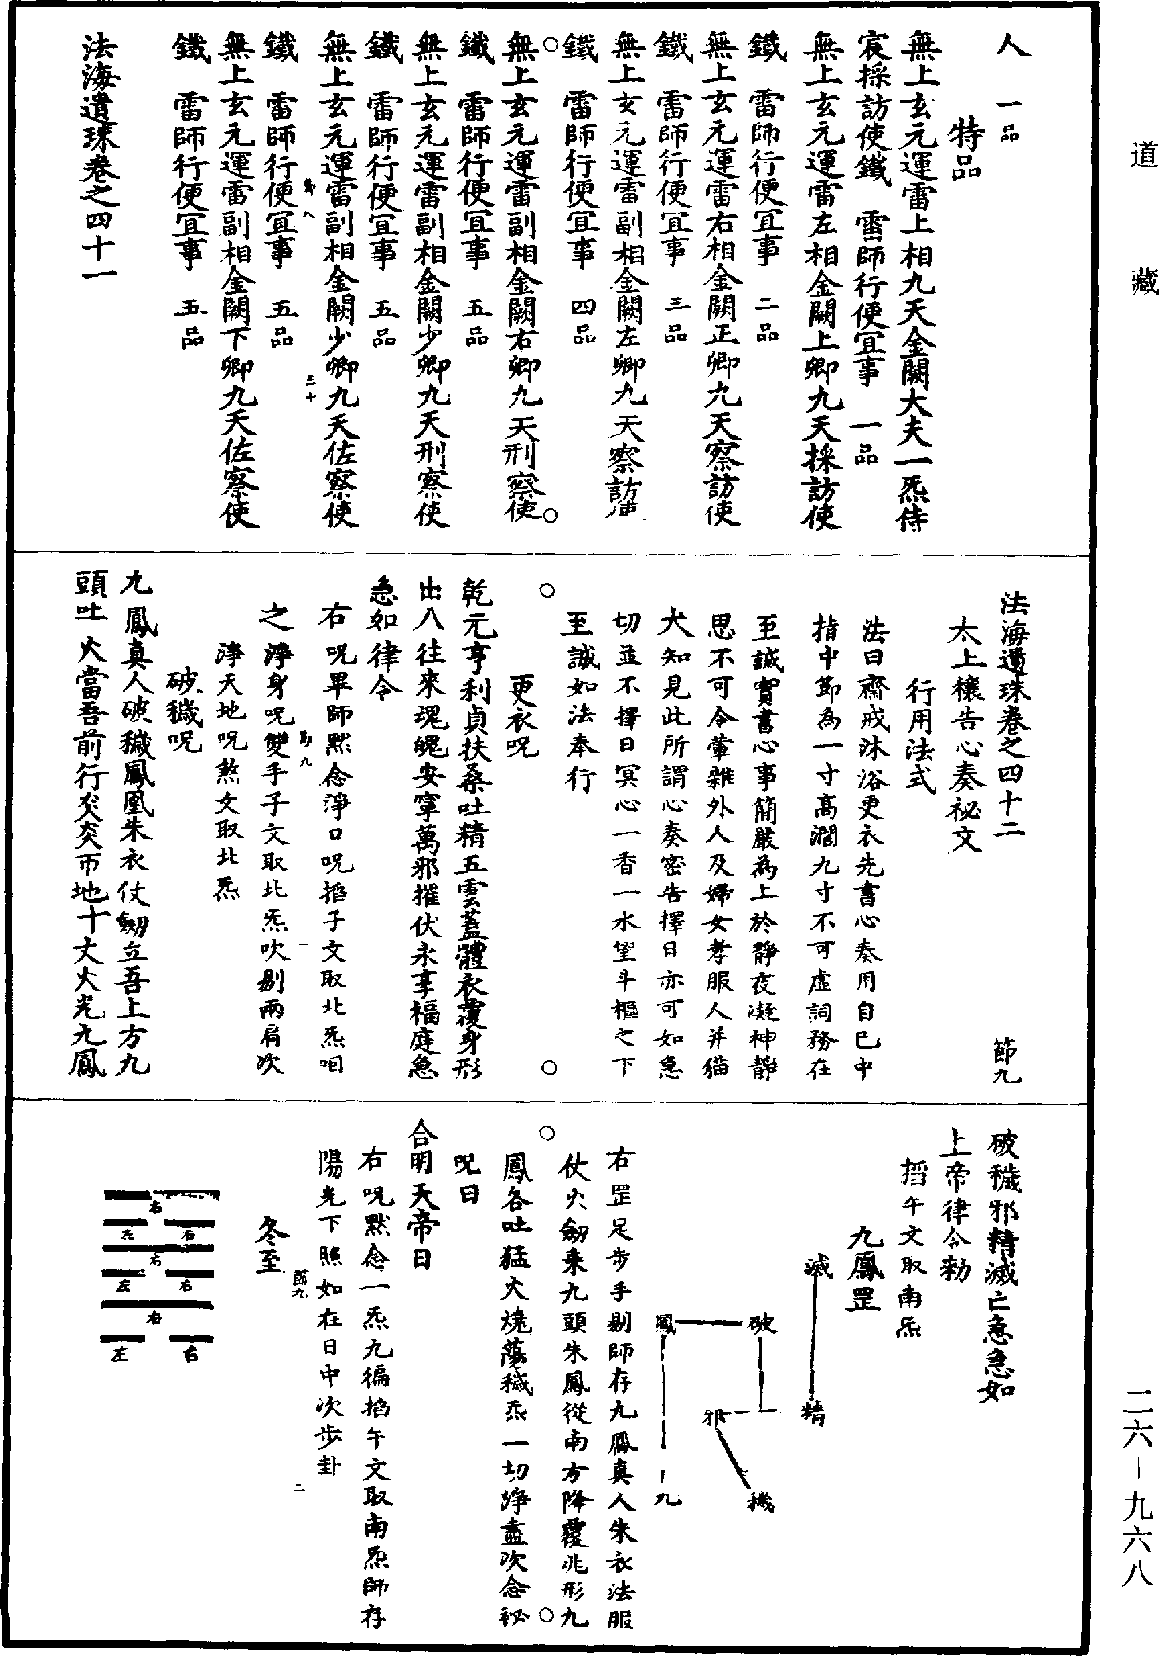 道藏
人　一品
特品
無上玄元運雷上相九天金闕大夫一炁侍
宸採訪使鐵　雷師行便宜事　一品
無上玄元運雷左相金闕上卿九天採訪使
鐵　雷師行便宜事　二品
無上玄元運雷右相金闕正卿九天察訪使
鐵　雷師行便宜事　三品
無上玄元運雷副相金闕左卿九天察訪使
鐵　雷師行便宜事　四品
無上玄元運雷副相金闕右卿九天刑察使
鐵　雷師行便宜事　五品
無上玄元運雷副相金闕少卿九天刑察使
鐵　雷師行便宜事　五品
無上玄元運雷副相金闕少卿九天佐察使
節八　三十
鐵　雷師行便宜事　五品
無上玄元運雷副相金闕下卿九天佐察使
鐵　雷師行便宜事　五品
法海遺珠卷之四十一
法海遺珠卷之四十二　節九
太上穰告心奏祕文
行用法式
法曰齋戒沐浴更衣先書心奏用自己中
指中節為一寸高濶九寸不可虛詞務在
至誠實書心事簡嚴為上於靜夜凝神靜
思不可令葷雜外人及婦女孝服人并猫
犬知見此所謂心奏密告擇日亦可如急
切並不擇日冥心一香一水望斗樞之下
至誠如法奉行
更衣呪
乾元亨利貞扶桑吐精五雲蓋體衣覆身形
出入往來魂魄安寧萬邪摧伏永享福庭急
急如律令
右呪畢師默念淨口呪掐子文取北炁咽
節九　一
之淨身呪雙手子文取北炁吹剔兩肩次
淨天地呪煞文取北炁
破穢呪
九鳳真人破穢鳳凰朱衣仗劒立吾上方九
頭吐火當吾前行炎炎帀地十丈火光九鳳
破穢邪精滅亡急急如
上帝律令勑
掐午文取南炁
九鳳罡
滅
精
破
穢
邪
鳳
九
右罡足步手剔師存九鳳真人朱衣法服
仗火劒乘九頭朱鳳從南方降覆兆形九
鳳各吐猛火燒蕩穢炁一切淨盡次念祕
呪曰
合明天帝日
右呪默念一炁九徧掐午文取南炁師存
陽光下照如在日中次步卦
節九　二
冬至
右
左　右
右
左　右
右
左　右
二六－九六八